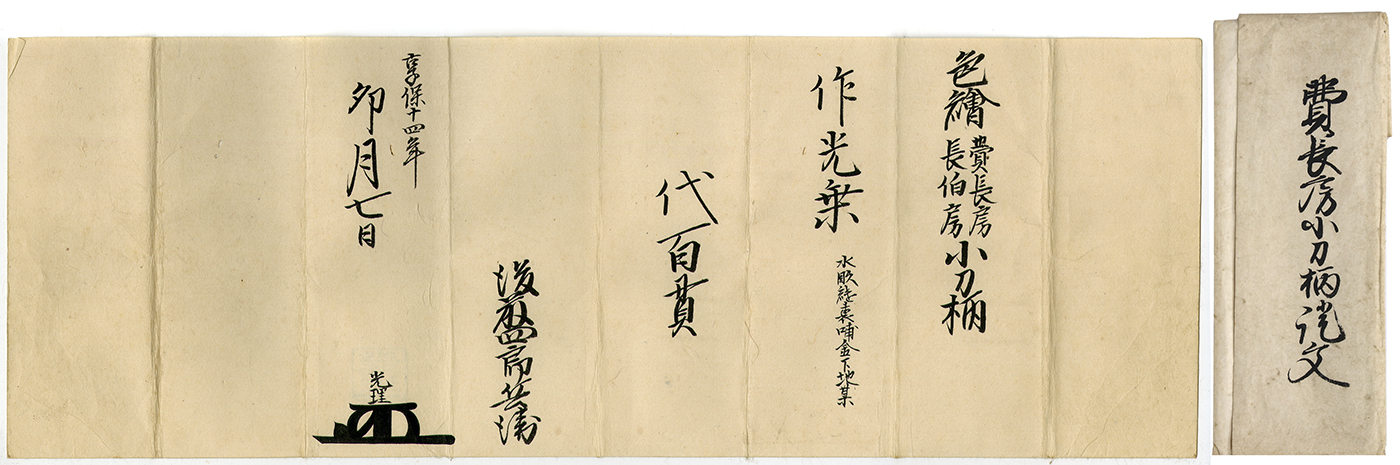 費長房小刀柄證文
色繪
費長房
長伯房
小刀柄
作光乗
裏哺金下地
代百貫
後藤四郎兵衛
享保十四年
卯月七日
光理